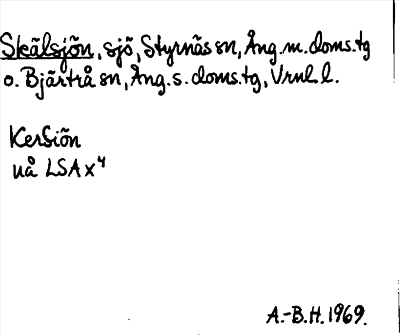 Skälsjön, sjö, Styrnäs sn, Ång. m. doms.tg
o. Bjärtrå sn, Ång. s. doms.tg, Vrnl. l.
uå LSA x⁴
A.-B.H. 1969.